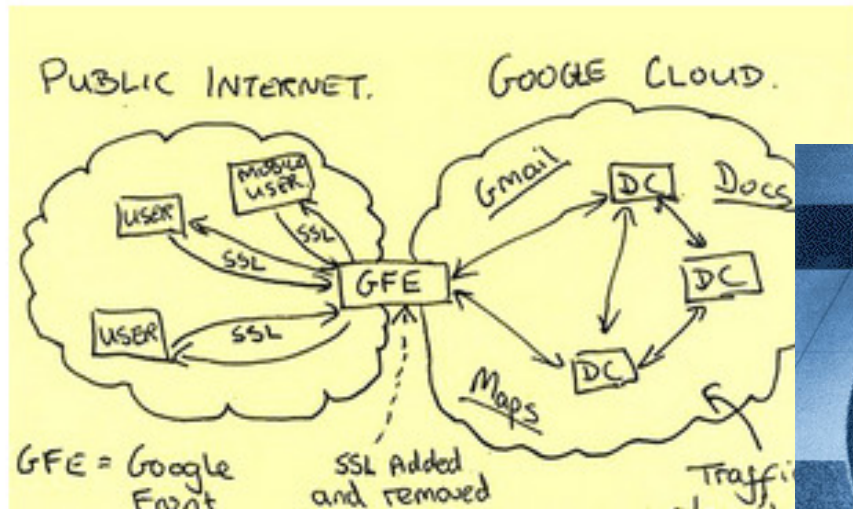 PUBLIC INTERNET.
GOOGLE CLOUD.
MOBILE
USER
USER
SSL
SSL
USER
SSL
GFE
Gmail
DC
Docs
DC
DC
Maps
GFE = Google
Front
SSL Added
and removed